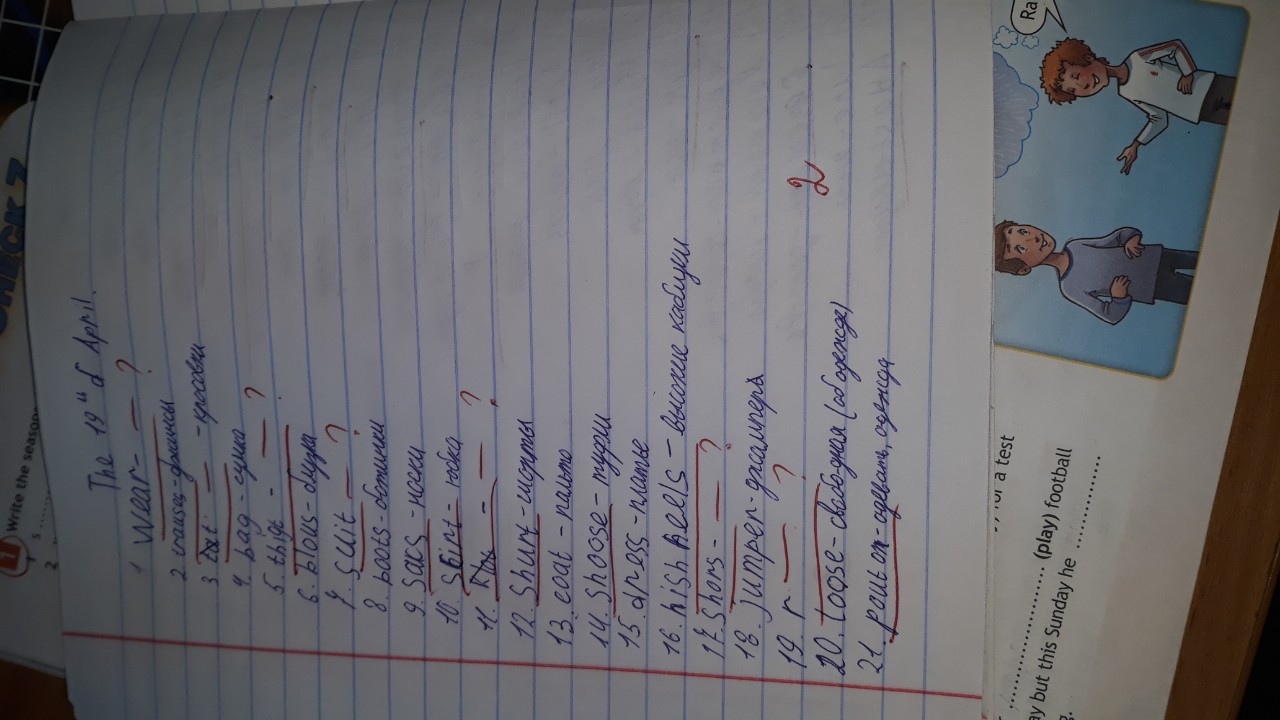 The 19th of April.
1 Wear- — ?
2. trauses-джинсы
3. — -кросовки
4. bag-сумка
5. thige - — ?
6. blous-блузка
7. Suit — ?
8. boots-ботинки
9. Sacs -носки
10. Skirt - юбка
11. - — ?
12. Shurt-шорты
13. coat - пальто
14. Shoose-туфли
15. dress-платье
16. high heels - высокие каблуки
17. Shors- — ?
18. jumper-джамперь
19. r — ?
20. Loose-свободная (об одежде)
21. paut on-одевать, одежда
2
CHECK 7
1 Write the season
1 s
2
Ra
for a test
(play) football
ay but this Sunday he
g.